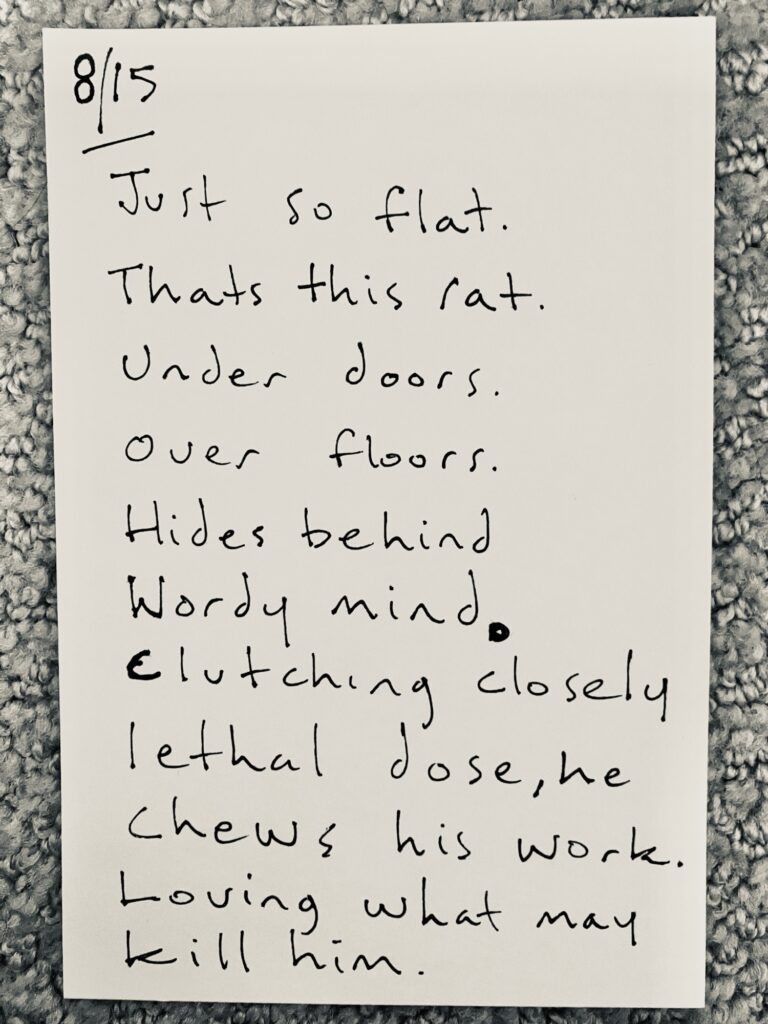 8/15
Just so flat.
Thats this rat.
Under doors.
Over floors.
Hides behind
Wordy mind.
Clutching closely
lethal dose, he
chews his work.
Loving what may
kill him.